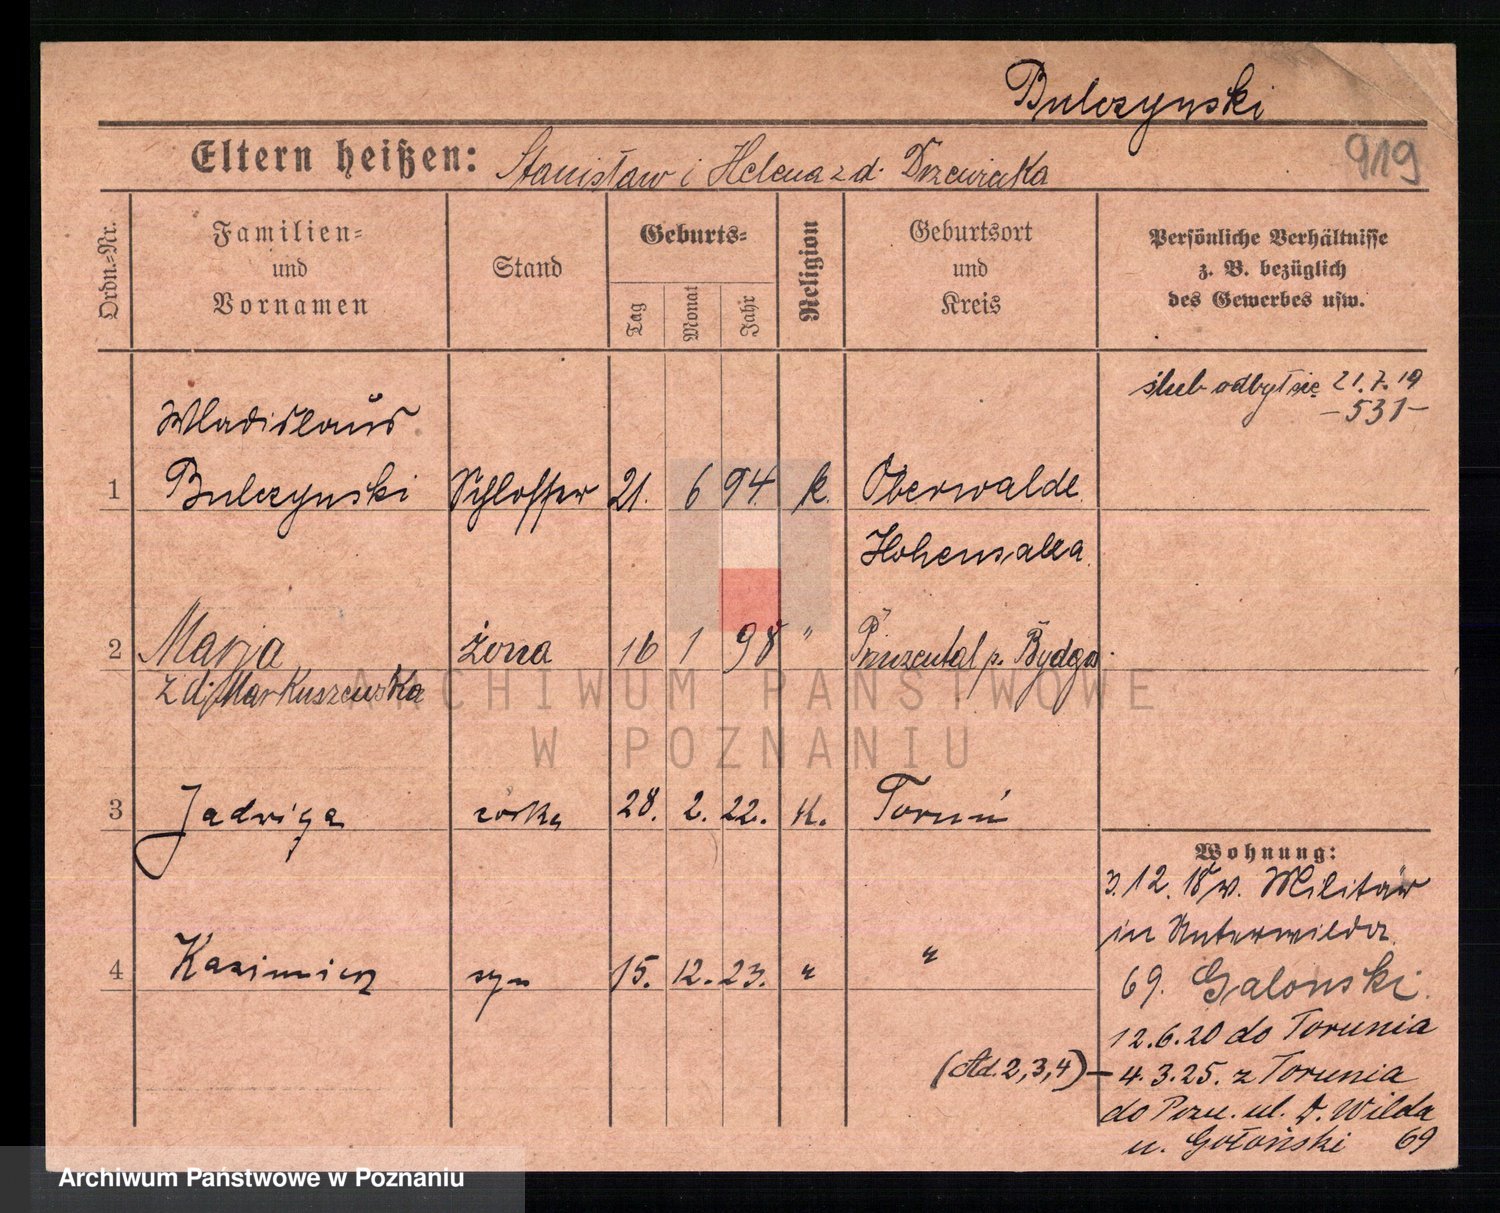 Bulczynski
919
Eltern heißen: Stanisław i Helena z d. Drzewiecka
Ordn.-Nr.
Familien-
und
Vornamen
Stand
Geburts-
Tag
Monat
Jahr
Religion
Geburtsort
und
Kreis
Persönliche Verhältnisse
z. B. bezüglich
des Gewerbes usw.
ślub odbył się 21.7.19
–531–
Wladislaus
1 Bulczynski Schlosser 21. 6 94. k. Oberwalde
Hohensalza
2 Marja żona 16 1 98 " Prinzental p. Bydgo.
z d. Markuszewska
3 Jadwiga córka 28. 2. 22. K. Toruń
4 Kazimierz syn 15. 12. 23. " "
Wohnung:
3.12.18 v. Militär
in Unterwilda
69. Galonski.
12.6.20 do Torunia
(Ad. 2, 3, 4) – 4.3.25. z Torunia
do Pozn. ul. D. Wilda
u. Gołoński 69
ARCHIWUM PAŃSTWOWE
W POZNANIU
Archiwum Państwowe w Poznaniu